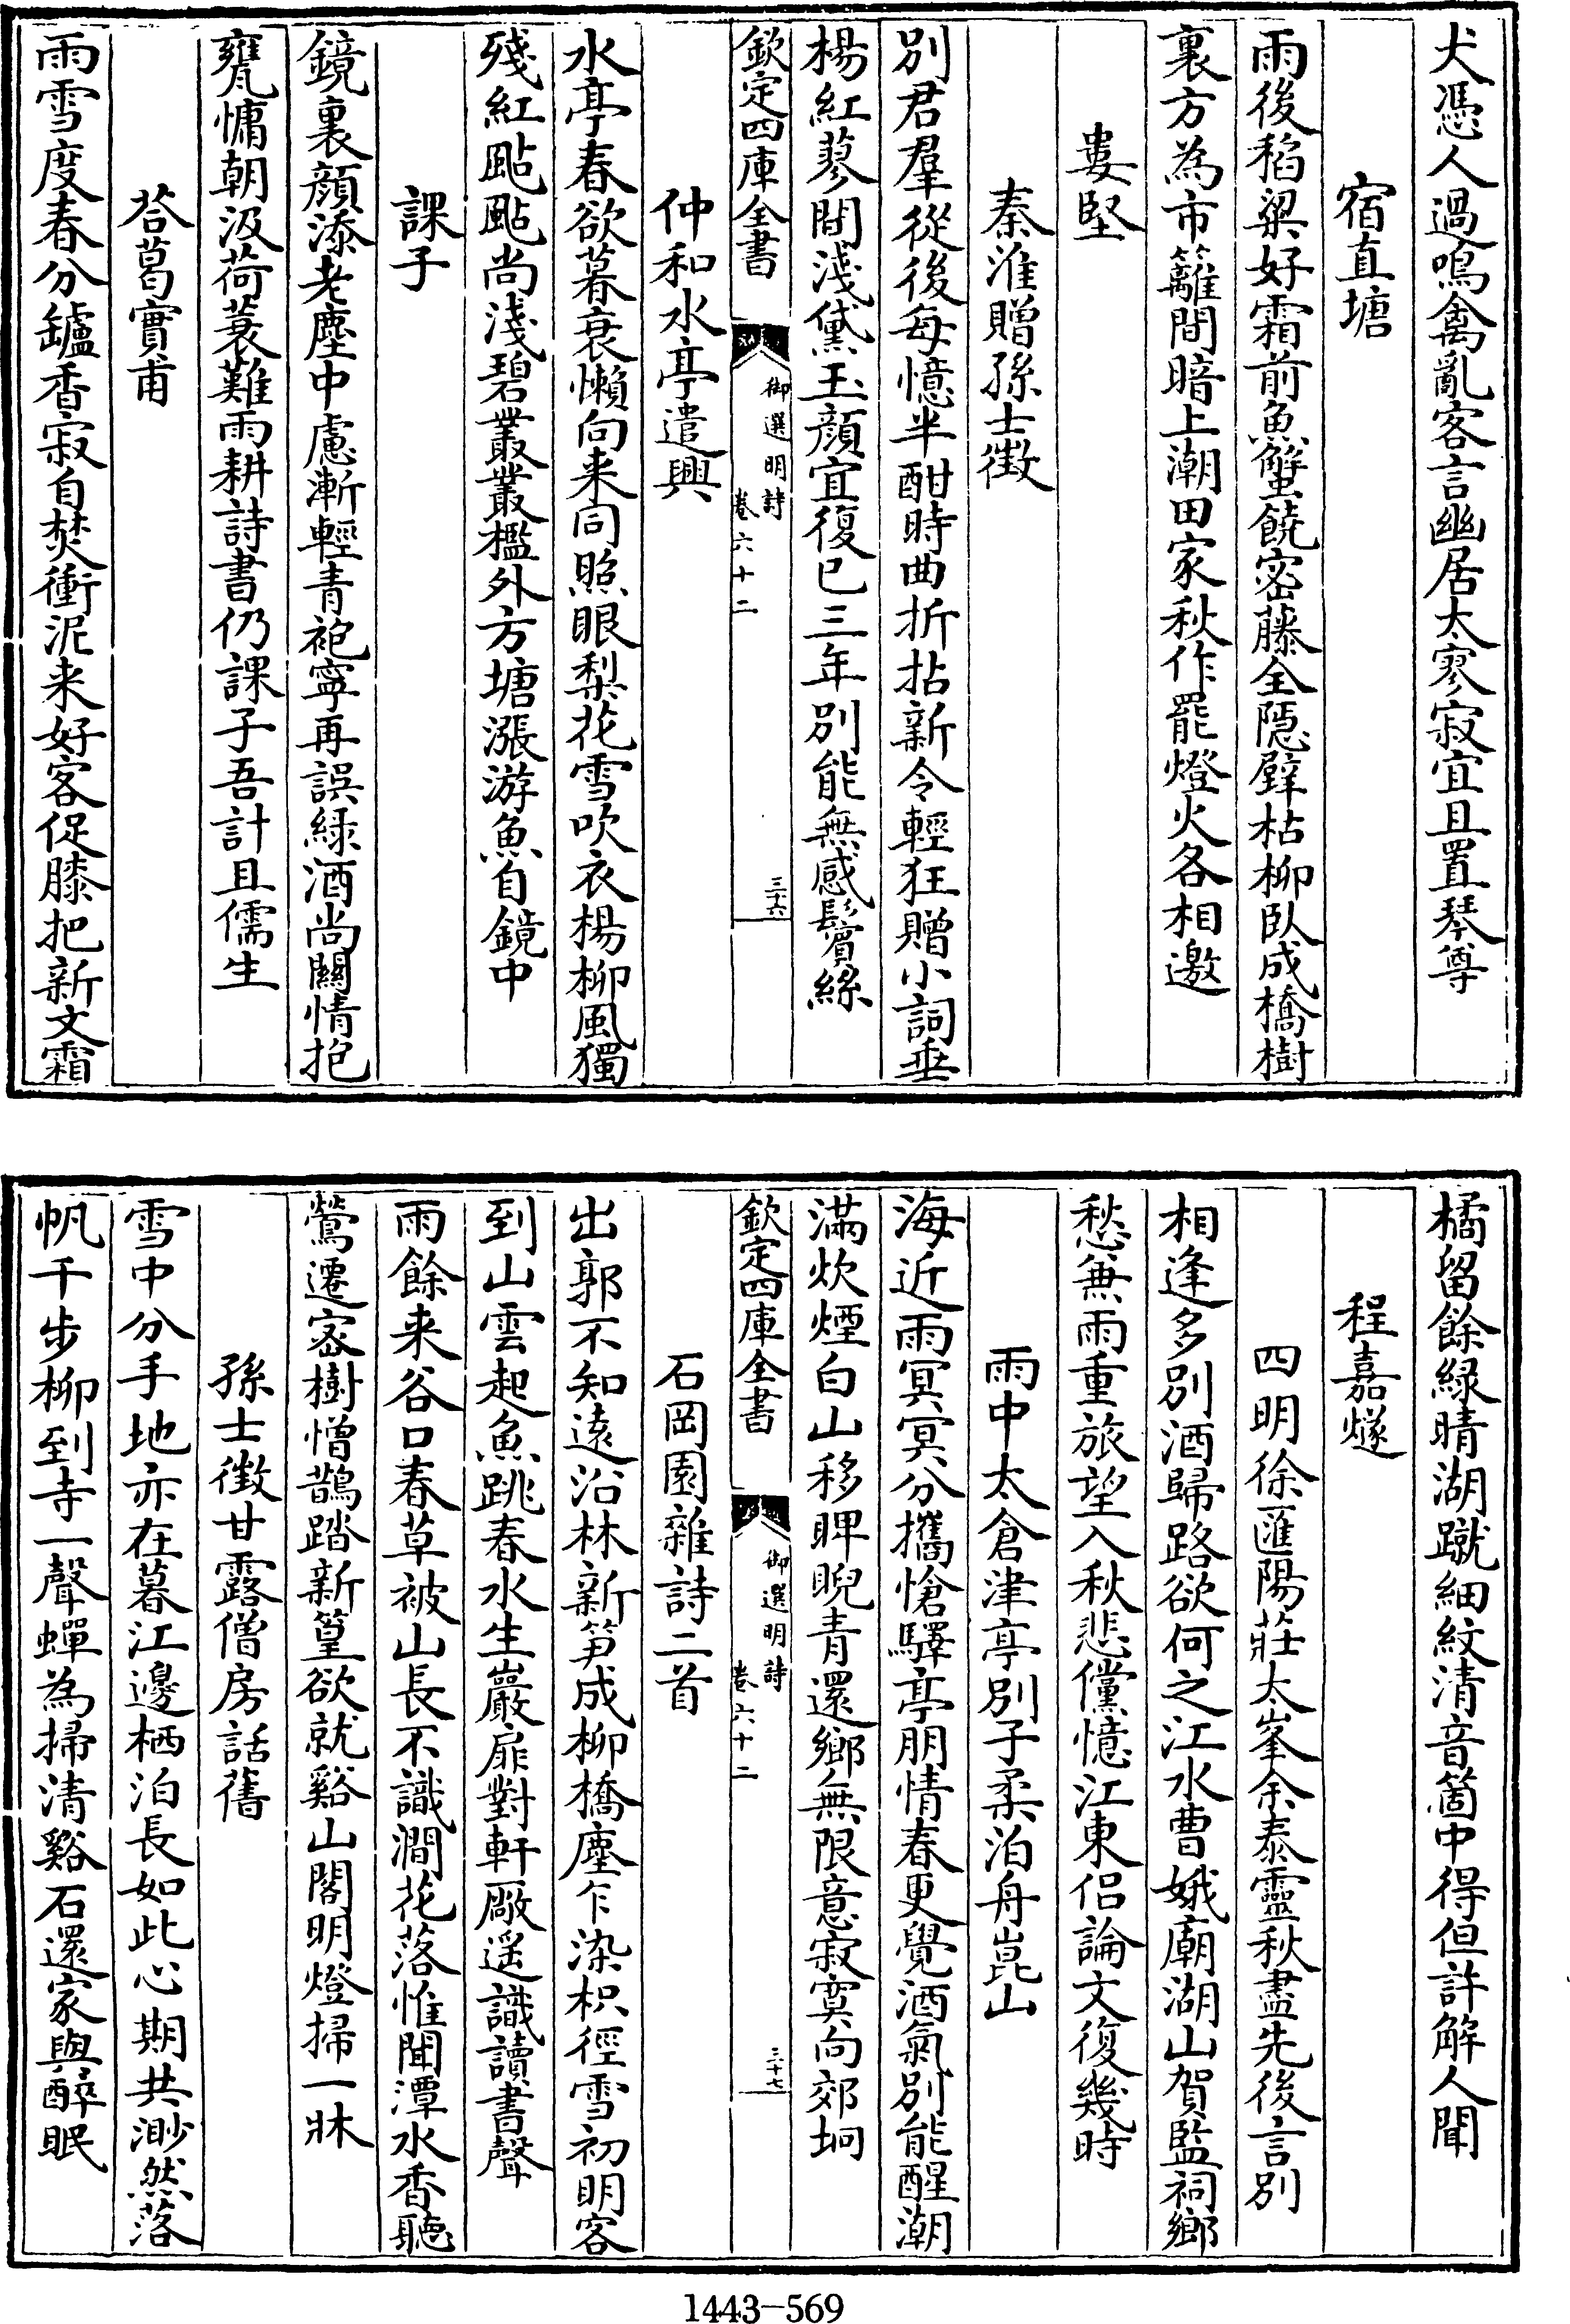 犬憑人過鳴禽亂客言幽居太寥寂宜且置琴尊
宿直塘
雨後稻粱好霜前魚蟹饒密藤全隱壁枯柳卧成橋樹
裏方為市籬間暗上潮田家秋作罷燈火各相邀
婁堅
秦淮贈孫士徵
別君羣從後每憶半酣時曲折拈新令輕狂贈小詞垂
楊紅蓼間淺黛玉顔宜復已三年別能無感鬢絲
欽定四庫全書
御選明詩
卷六十二
三十六
仲和水亭遣興
水亭春欲暮衰懶向来同照眼梨花雪吹衣楊柳風獨
殘紅颭颭尚淺碧叢叢檻外方塘漲游魚自鏡中
課子
鏡裏顔添老塵中慮漸輕青袍寧再誤緑酒尚關情抱
甕慵朝汲荷蓑難雨耕詩書仍課子吾計且儒生
答葛實甫
雨雪度春分罏香寂自焚衝泥来好客促膝把新文霜
橘留餘緑晴湖蹴細紋清音箇中得但許解人聞
程嘉燧
四明徐匯陽莊太峯余泰靈秋盡先後言別
相逢多別酒歸路欲何之江水曹娥廟湖山賀監祠鄉
愁兼雨重旅望入秋悲儻憶江東侣論文復幾時
雨中太倉津亭別子柔泊舟崑山
海近雨冥冥分攜愴驛亭朋情春更覺酒氣別能醒潮
滿炊煙白山移睥睨青還鄉無限意寂寞向郊坰
欽定四庫全書
御選明詩
卷六十二
三十七
石岡園雜詩二首
出郭不知遠沿林新笋成柳橋塵乍染枳徑雪初明客
到山雲起魚跳春水生巖扉對軒厰遥識讀書聲
雨餘来谷口春草被山長不識澗花落惟聞潭水香聽
鶯遷密樹憎鵲踏新篁欲就谿山閣明燈掃一牀
孫士徵甘露僧房話舊
雪中分手地亦在暮江邊栖泊長如此心期共渺然落
帆千步柳到寺一聲蟬為掃清谿石還家與醉眠
1443-569